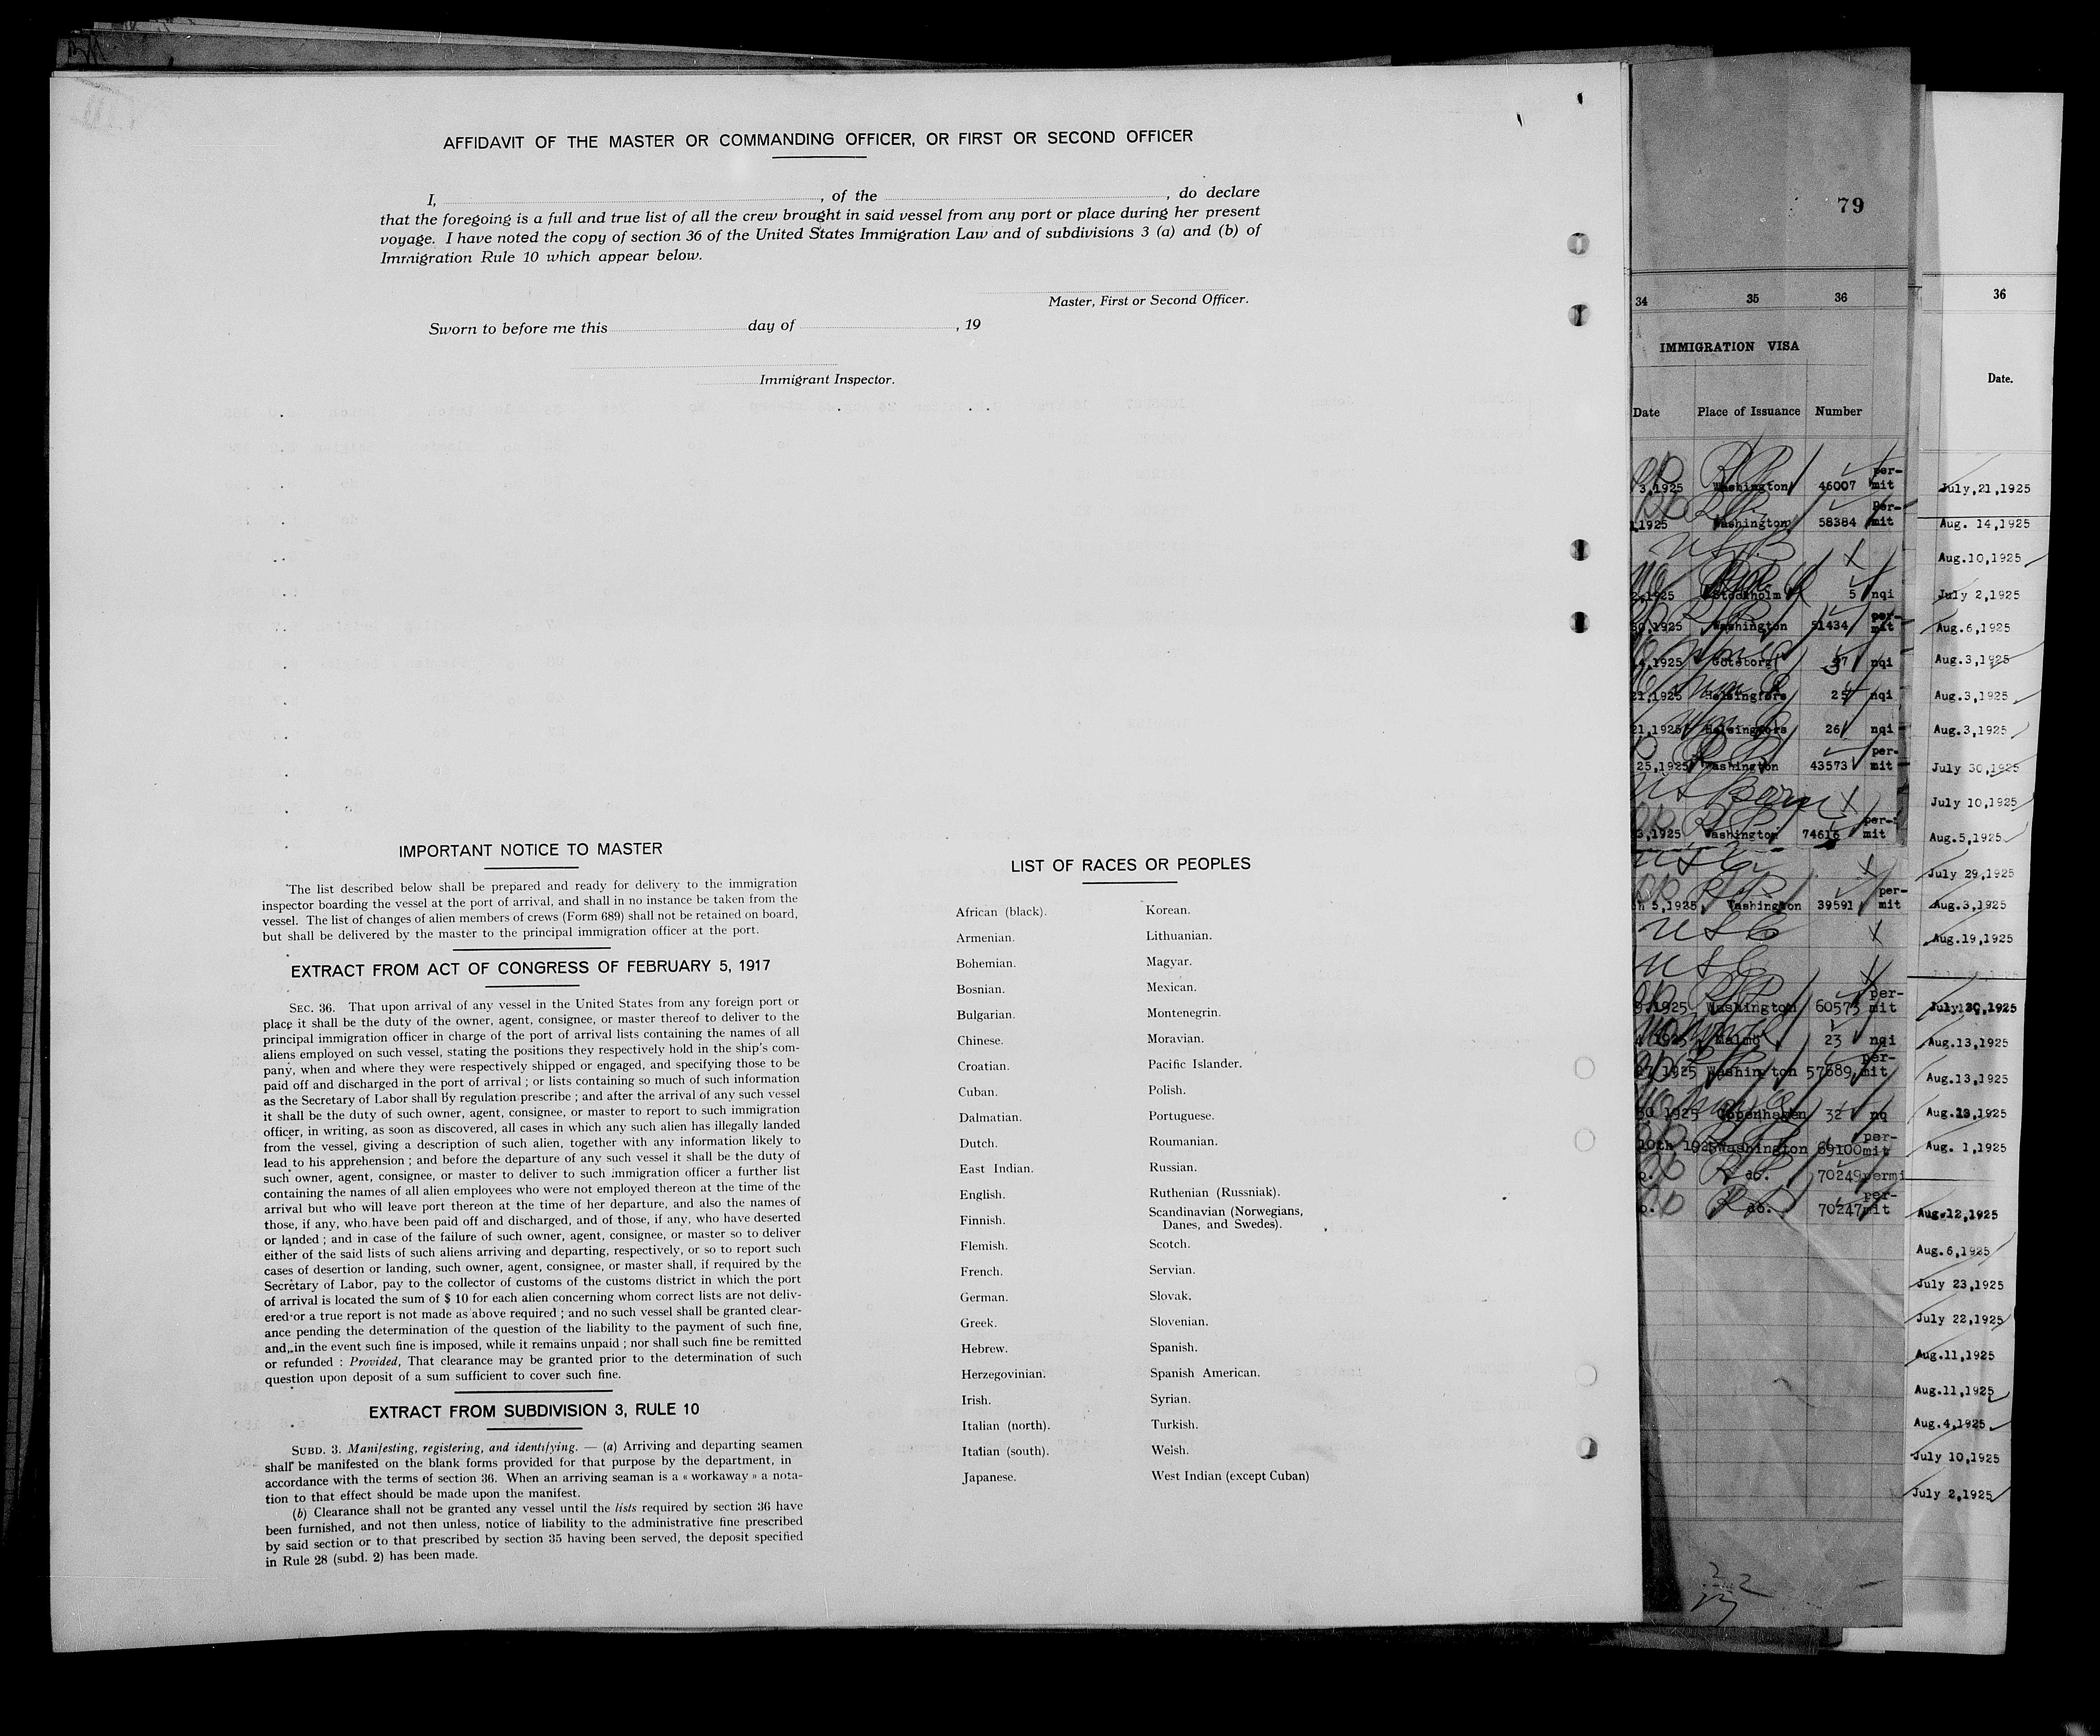 AFFIDAVIT OF THE MASTER OR COMMANDING OFFICER, OR FIRST OR SECOND OFFICER
I, , of the , do declare
that the foregoing is a full and true list of all the crew brought in said vessel from any port or place during her present
voyage. I have noted the copy of section 36 of the United States Immigration Law and of subdivisions 3 (a) and (b) of
Immigration Rule 10 which appear below.
Master, First or Second Officer.
Sworn to before me this day of , 19
Immigrant Inspector.
IMPORTANT NOTICE TO MASTER
The list described below shall be prepared and ready for delivery to the immigration
inspector boarding the vessel at the port of arrival, and shall in no instance be taken from the
vessel. The list of changes of alien members of crews (Form 689) shall not be retained on board,
but shall be delivered by the master to the principal immigration officer at the port.
EXTRACT FROM ACT OF CONGRESS OF FEBRUARY 5, 1917
SEC. 36. That upon arrival of any vessel in the United States from any foreign port or
place it shall be the duty of the owner, agent, consignee, or master thereof to deliver to the
principal immigration officer in charge of the port of arrival lists containing the names of all
aliens employed on such vessel, stating the positions they respectively hold in the ship's com-
pany, when and where they were respectively shipped or engaged, and specifying those to be
paid off and discharged in the port of arrival ; or lists containing so much of such information
as the Secretary of Labor shall by regulation prescribe ; and after the arrival of any such vessel
it shall be the duty of such owner, agent, consignee, or master to report to such immigration
officer, in writing, as soon as discovered, all cases in which any such alien has illegally landed
from the vessel, giving a description of such alien, together with any information likely to
lead to his apprehension ; and before the departure of any such vessel it shall be the duty of
such owner, agent, consignee, or master to deliver to such immigration officer a further list
containing the names of all alien employees who were not employed thereon at the time of the
arrival but who will leave port thereon at the time of her departure, and also the names of
those, if any, who have been paid off and discharged, and of those, if any, who have deserted
or landed ; and in case of the failure of such owner, agent, consignee, or master so to deliver
either of the said lists of such aliens arriving and departing, respectively, or so to report such
cases of desertion or landing, such owner, agent, consignee, or master shall, if required by the
Secretary of Labor, pay to the collector of customs of the customs district in which the port
of arrival is located the sum of $ 10 for each alien concerning whom correct lists are not deliv-
ered or a true report is not made as above required ; and no such vessel shall be granted clear-
ance pending the determination of the question of the liability to the payment of such fine,
and, in the event such fine is imposed, while it remains unpaid ; nor shall such fine be remitted
or refunded : Provided, That clearance may be granted prior to the determination of such
question upon deposit of a sum sufficient to cover such fine.
EXTRACT FROM SUBDIVISION 3, RULE 10
SUBD. 3. Manifesting, registering, and identifying. — (a) Arriving and departing seamen
shall be manifested on the blank forms provided for that purpose by the department, in
accordance with the terms of section 36. When an arriving seaman is a « workaway » a nota-
tion to that effect should be made upon the manifest.
(b) Clearance shall not be granted any vessel until the lists required by section 36 have
been furnished, and not then unless, notice of liability to the administrative fine prescribed
by said section or to that prescribed by section 35 having been served, the deposit specified
in Rule 28 (subd. 2) has been made.
LIST OF RACES OR PEOPLES
African (black).
Armenian.
Bohemian.
Bosnian.
Bulgarian.
Chinese.
Croatian.
Cuban.
Dalmatian.
Dutch.
East Indian.
English.
Finnish.
Flemish.
French.
German.
Greek.
Hebrew.
Herzegovinian.
Irish.
Italian (north).
Italian (south).
Japanese.
Korean.
Lithuanian.
Magyar.
Mexican.
Montenegrin.
Moravian.
Pacific Islander.
Polish.
Portuguese.
Roumanian.
Russian.
Ruthenian (Russniak).
Scandinavian (Norwegians,
Danes, and Swedes).
Scotch.
Servian.
Slovak.
Slovenian.
Spanish.
Spanish American.
Syrian.
Turkish.
Welsh.
West Indian (except Cuban)
79
34 35 36
IMMIGRATION VISA
Date Place of Issuance Number
3,1925 Washington 46007 per-
mit
1925 Washington 58384 Per-
mit
1925 Stockholm 5 nqi
1925 Washington 51434 per-
mit
1925 Goteborg nqi
21,1925 Helsingfors 25 nqi
21,1925 Helsingfors 26 nqi
25,1925 Washington 43573 per-
mit
3,1925 Washington 74616 per-
mit
5,1925 Washington 39591 per-
mit
1925 Washington 60573 per-
mit
1925 Malmo 23 nqi
27 1925 Washin ton 57689 per-
mit
1925 Copenhagen 32 nq
10th 1925 Washington 69100 per-
mit
do. 70249 permi
do. 70247 per-
mit
36
Date.
July,21,1925
Aug. 14,1925
Aug.10,1925
July 2,1925
Aug.6,1925
Aug.3,1925
Aug.3,1925
Aug.3,1925
July 30,1925
July 10,1925
Aug.5,1925
July 29,1925
Aug.3,1925
Aug.19,1925
July 30,1925
Aug.13,1925
Aug.13,1925
Aug.13,1925
Aug. 1,1925
Aug.12,1925
Aug.6,1925
July 23,1925
July 22,1925
Aug.11,1925
Aug.11,1925
Aug.4,1925
July 10,1925
July 2,1925